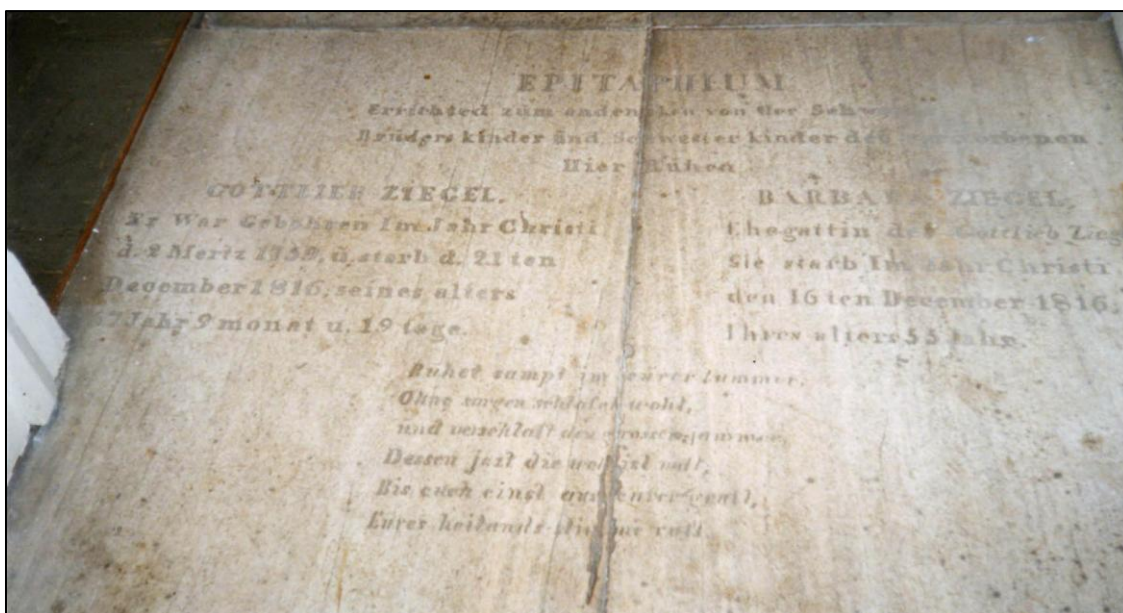 EPITAPHIUM
Errichted zum andenken von der
Brüders kinder ünd Schwester kinder des
Hier Rühen
GOTTLIEB ZIEGEL.
Er War Gebohren Im Jahr Christi
d. 2 Mertz ü. starb d. 21 ten
December 1816, seines alters
Jahr 9 monat u. 19 tage.
BARBARA ZIEGEL,
Ehegattin des Gottlieb Zieg
Sie starb Im Jahr Christi
den 16 ten December 1816,
Ihres alters 55 Jahr.
Ruhet sampt im
Ohne sorgen schlafet wohl,
und verschlaft den grossen jammer,
Dessen jezt die welt ist voll,
Bis euch einst aus eurer
Eures heilands stimme ruft.